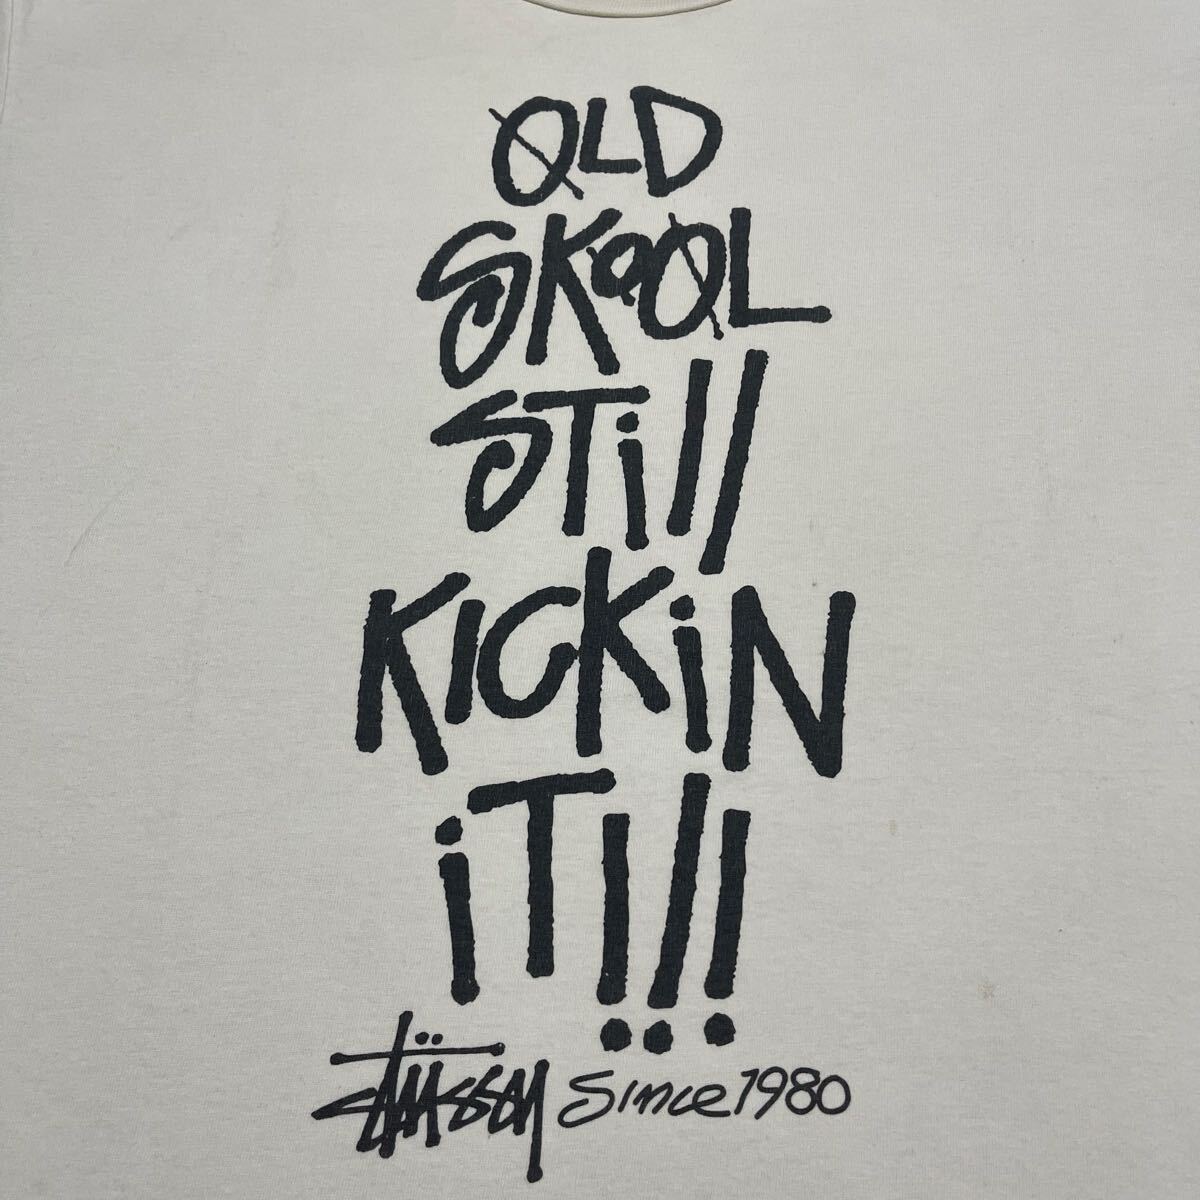 OLD
SKOOL
STill
KICKiN
iT!!!
Stüssy Since 1980